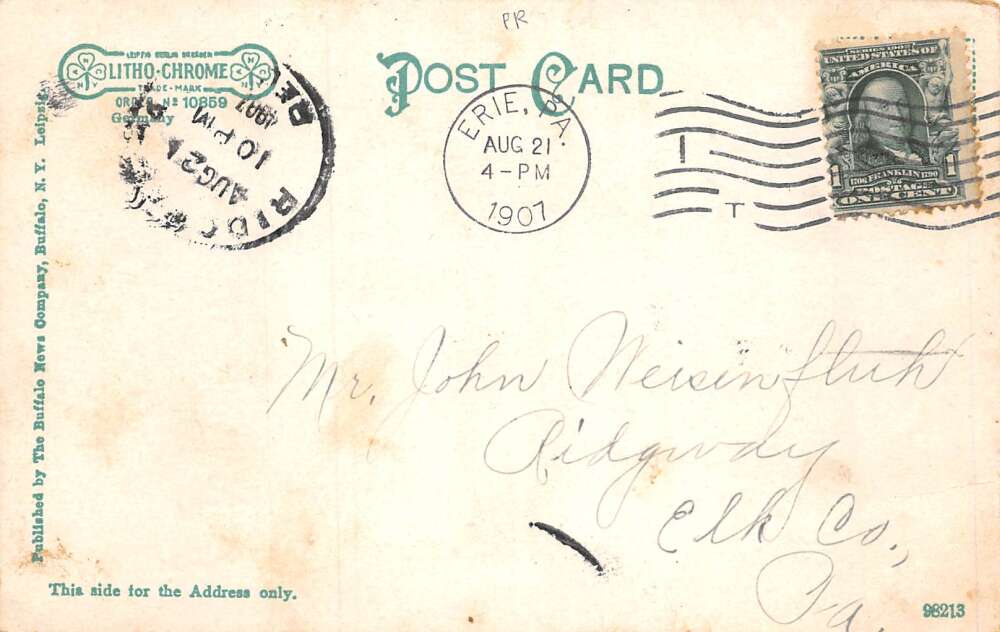 PR
LEIPZIG BERLIN DRESDEN
LITHO-CHROME
TRADE-MARK
ORDER No 10859
Germany
POST CARD
ERIE, PA.
AUG 21
4-PM
1907
I
T
SERIES 1902
UNITED STATES OF
AMERICA
1706 FRANKLIN 1790
1 POSTAGE 1
ONE CENT
REC
1907
10 PM
AUG 21
RIDG
Published by The Buffalo News Company, Buffalo, N. Y. Leipzig
Mr. John Weisenfluh
Ridgway
Elk Co.,
Pa.
This side for the Address only.
98213